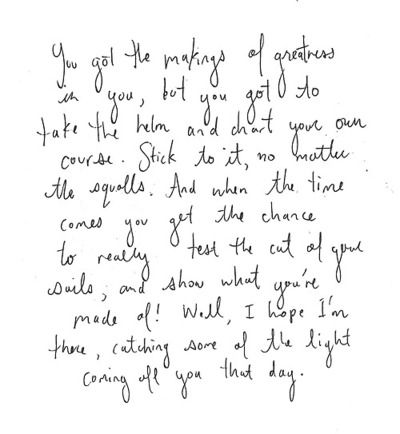 You got the makings of greatness
in you, but you got to
take the helm and chart your own
course. Stick to it, no matter
the squalls. And when the time
comes you get the chance
to really test the cut of your
sails, and show what you're
made of! Well, I hope I'm
there, catching some of the light
coming off you that day.